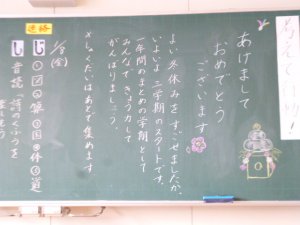 考えて行動!
あけまして
おめでとう
ございます
よい冬休みをすごせましたか。
いよいよ三学期のスタートです。
一年間のまとめの学期として
みんなできょう力して
がんばりましょう。
しゅくだいはあとで集めます
連絡
1/8
(金)
じ
し
音読「詩のくふうを